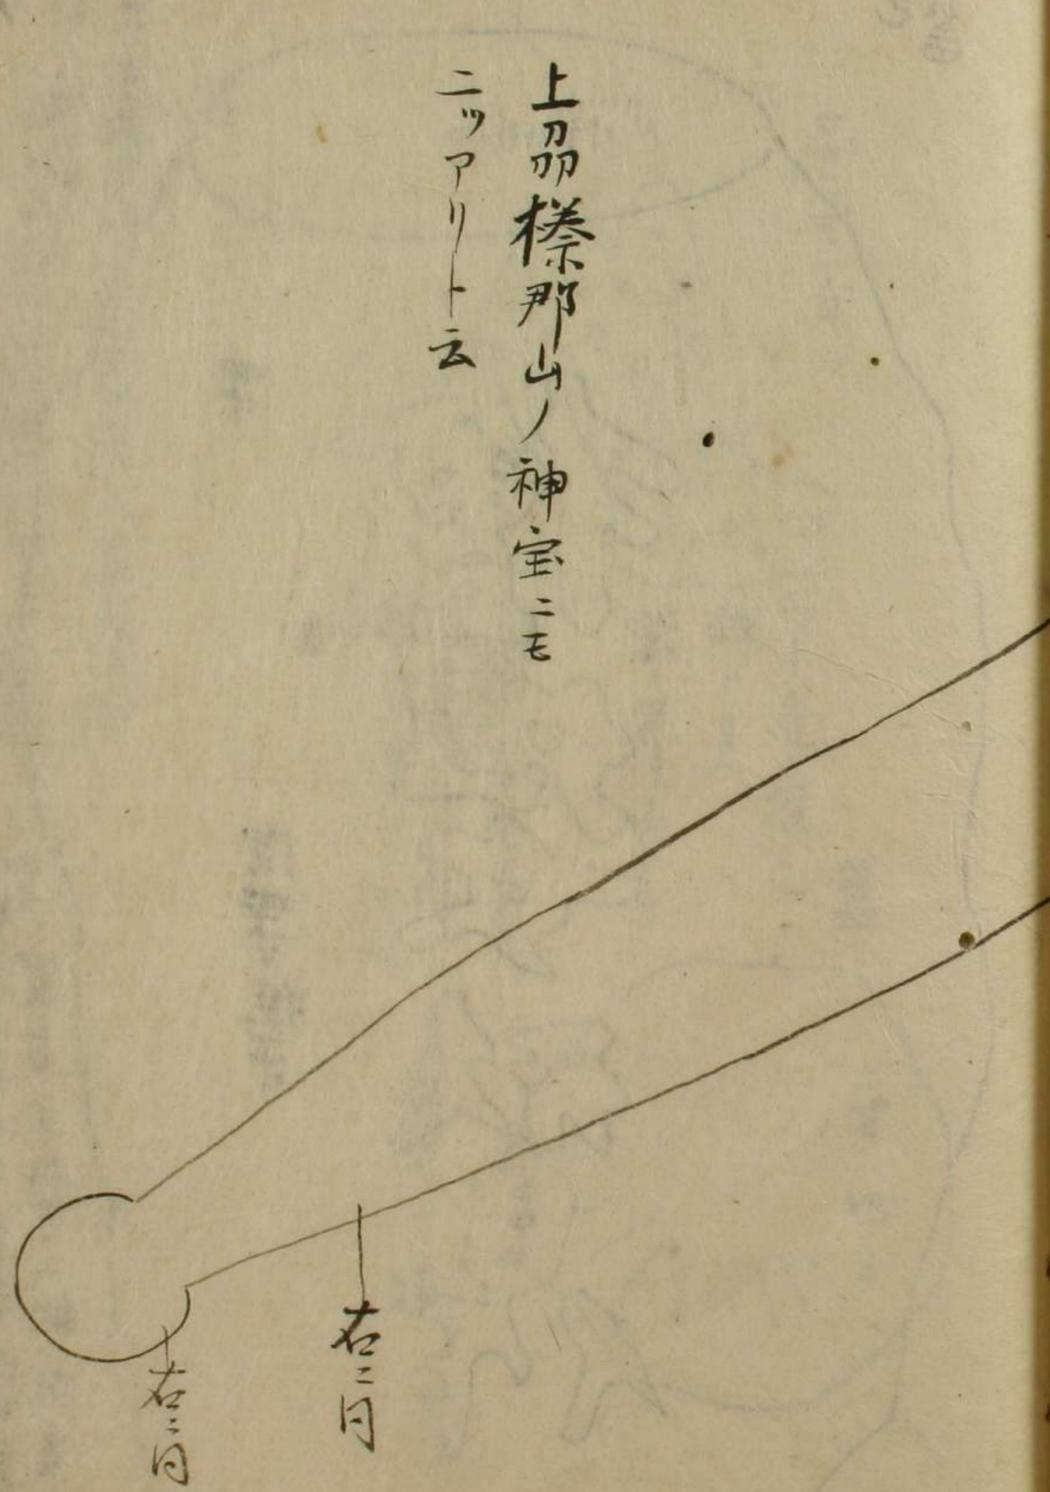 上刕榛那山ノ神宝ニモ
二ツアリト云
右ニ同
右ニ同